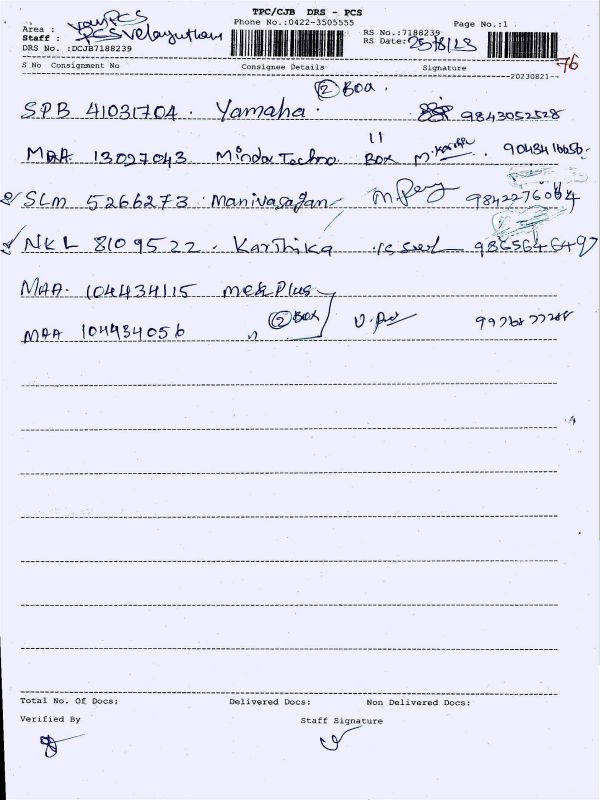 TPC/CJB DRS - PCS
Phone No.:0422-3505555 Page No.:1
Area : PCS
Staff : PCS Velayutham RS No.:7188239
RS Date: 25/8/23
DRS No. :DCJB7188239
76
S No Consignment No Consignee Details Signature
20230821--
② Box.
SPB 41031704. Yamaha. 9843052528
MAA 13027043 Minda Techno 11 Box
SLM 5266273 Manivasagan 9842276064
NKL 8109522. Karthika 9865646497
MAA. 104434115 mekplus
MAA 104434056 " ② Box
Total No. Of Docs: Delivered Docs: Non Delivered Docs:
Verified By Staff Signature